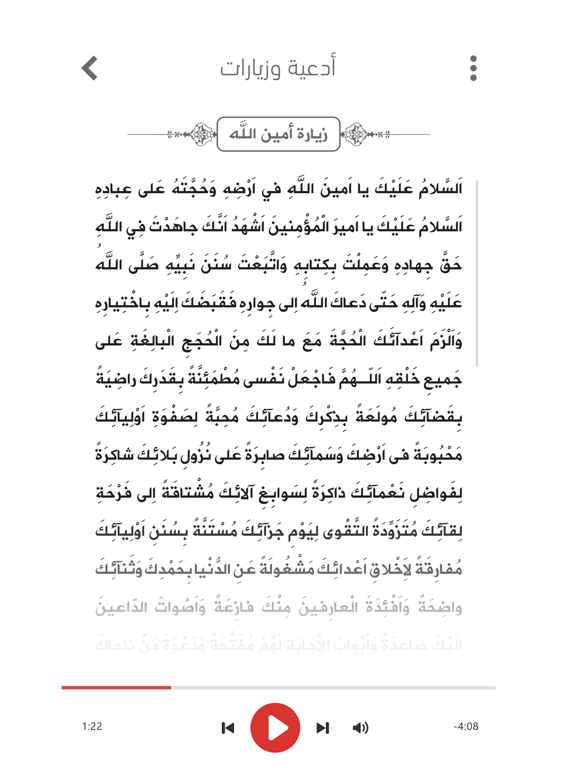 أدعية وزيارات
زيارة أمين اللَّه
اَلسَّلامُ عَلَيْكَ يا اَمينَ اللَّهِ في اَرْضِهِ وَحُجَّتَهُ عَلى عِبادِهِ
اَلسَّلامُ عَلَيْكَ يا اَميرَ الْمُؤْمِنينَ اَشْهَدُ اَنَّكَ جاهَدْتَ فِي اللَّهِ
حَقَّ جِهادِهِ وَعَمِلْتَ بِكِتابِهِ وَاتَّبَعْتَ سُنَنَ نَبِيِّهِ صَلَّى اللَّهُ
عَلَيْهِ وَآلِهِ حَتّى دَعاكَ اللَّهُ اِلى جِوارِهِ فَقَبَضَكَ اِلَيْهِ بِاخْتِيارِهِ
وَاَلْزَمَ اَعْدآئَكَ الْحُجَّةَ مَعَ ما لَكَ مِنَ الْحُجَجِ الْبالِغَةِ عَلى
جَميعِ خَلْقِهِ اَللّـهُمَّ فَاجْعَلْ نَفْسى مُطْمَئِنَّةً بِقَدَرِكَ راضِيَةً
بِقَضآئِكَ مُولَعَةً بِذِكْرِكَ وَدُعآئِكَ مُحِبَّةً لِصَفْوَةِ اَوْلِيآئِكَ
مَحْبُوبَةً فى اَرْضِكَ وَسَمآئِكَ صابِرَةً عَلى نُزُولِ بَلائِكَ شاكِرَةً
لِفَواضِلِ نَعْمآئِكَ ذاكِرَةً لِسَوابِغِ آلائِكَ مُشْتاقَةً اِلى فَرْحَةِ
لِقآئِكَ مُتَزَوِّدَةً التَّقْوى لِيَوْمِ جَزآئِكَ مُسْتَنَّةً بِسُنَنِ اَوْلِيآئِكَ
مُفارِقَةً لِاَخْلاقِ اَعْدائِكَ مَشْغُولَةً عَنِ الدُّنْيا بِحَمْدِكَ وَثَنآئِكَ
واضِحَةٌ وَاَفْئِدَةَ الْعارِفينَ مِنْكَ فازِعَةٌ وَاَصْواتَ الدّاعينَ
اِلَيْكَ صاعِدَةٌ وَاَبْوابَ الْاِجابَةِ لَهُمْ مُفَتَّحَةٌ وَدَعْوَةَ مَنْ ناجاكَ
1:22
-4:08